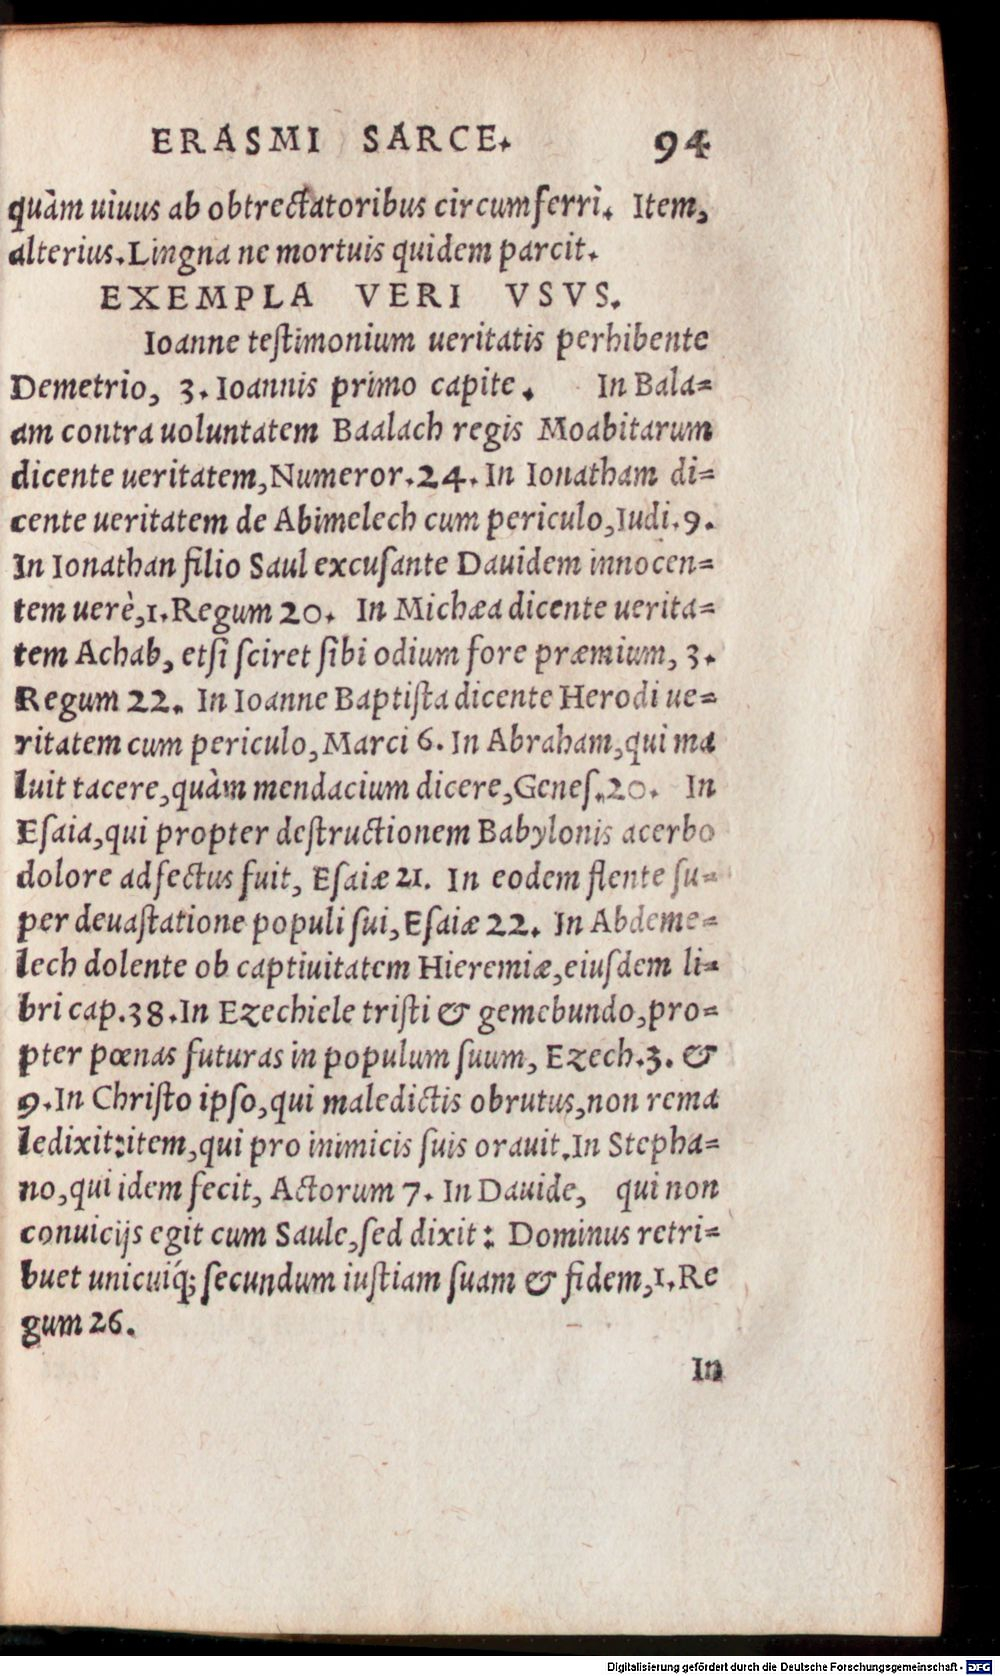 ERASMI SARCE. 94
quàm uiuus ab obtrectatoribus circumferri. Item,
alterius. Lingna ne mortuis quidem parcit.
EXEMPLA VERI VSVS.
Ioanne teſtimonium ueritatis perhibente
Demetrio, 3. Ioannis primo capite. In Bala=
am contra uoluntatem Baalach regis Moabitarum
dicente ueritatem, Numeror. 24. In Ionatham di=
cente ueritatem de Abimelech cum periculo, Iudi. 9.
In Ionathan filio Saul excuſante Dauidem innocen=
tem uerè, 1. Regum 20. In Michæa dicente uerita=
tem Achab, etſi ſciret ſibi odium fore præmium, 3.
Regum 22. In Ioanne Baptiſta dicente Herodi ue=
ritatem cum periculo, Marci 6. In Abraham, qui ma
luit tacere, quàm mendacium dicere, Geneſ. 20. In
Eſaia, qui propter deſtructionem Babylonis acerbo
dolore adfectus fuit, Eſaiæ 21. In eodem flente ſu=
per deuaſtatione populi ſui, Eſaiæ 22. In Abdeme=
lech dolente ob captiuitatem Hieremiæ, eiuſdem li=
bri cap. 38. In Ezechiele triſti & gemebundo, pro=
pter pœnas futuras in populum ſuum, Ezech. 3. &
9. In Chriſto ipſo, qui maledictis obrutus, non rema
ledixit: item, qui pro inimicis ſuis orauit. In Stepha=
no, qui idem fecit, Actorum 7. In Dauide, qui non
conuicijs egit cum Saule, ſed dixit: Dominus retri=
buet unicuiq́; ſecundum iuſtiam ſuam & fidem, 1. Re
gum 26.
In
Digitalisierung gefördert durch die Deutsche Forschungsgemeinschaft - DFG